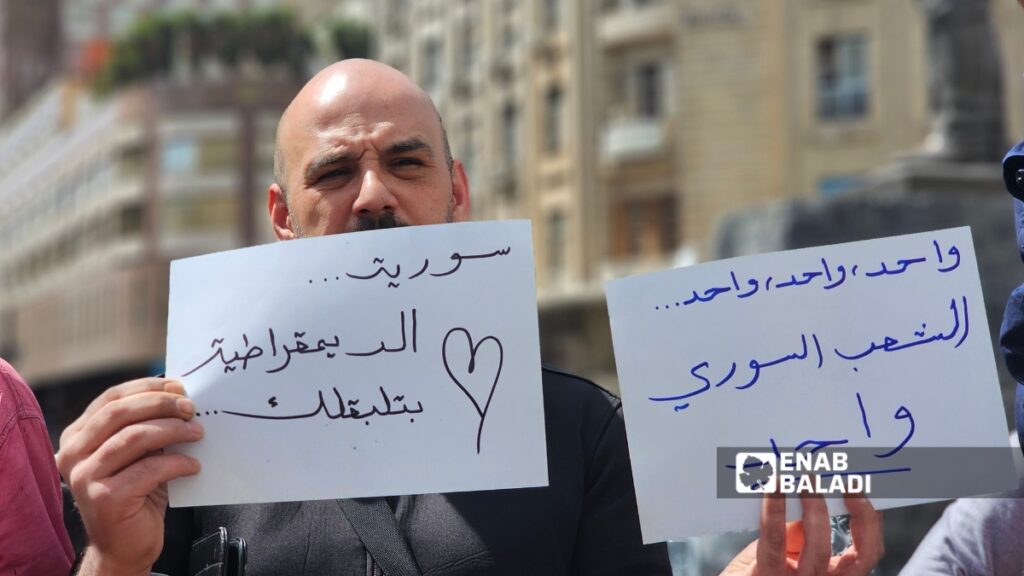 سورية...
الديمقراطية
بتلبقلك...
واحد، واحد، واحد...
الشعب السوري
واحد
ENAB
BALADI